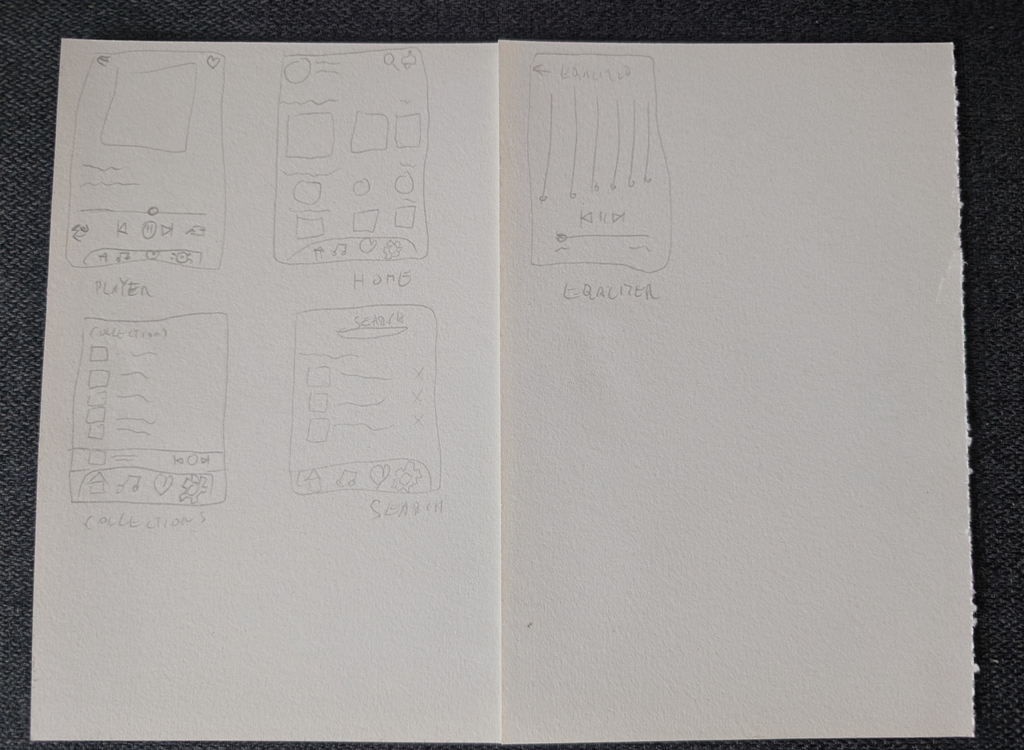 PLAYER
HOME
COLLECTIONS
COLLECTIONS
SEARCH
SEARCH
EQALIZER